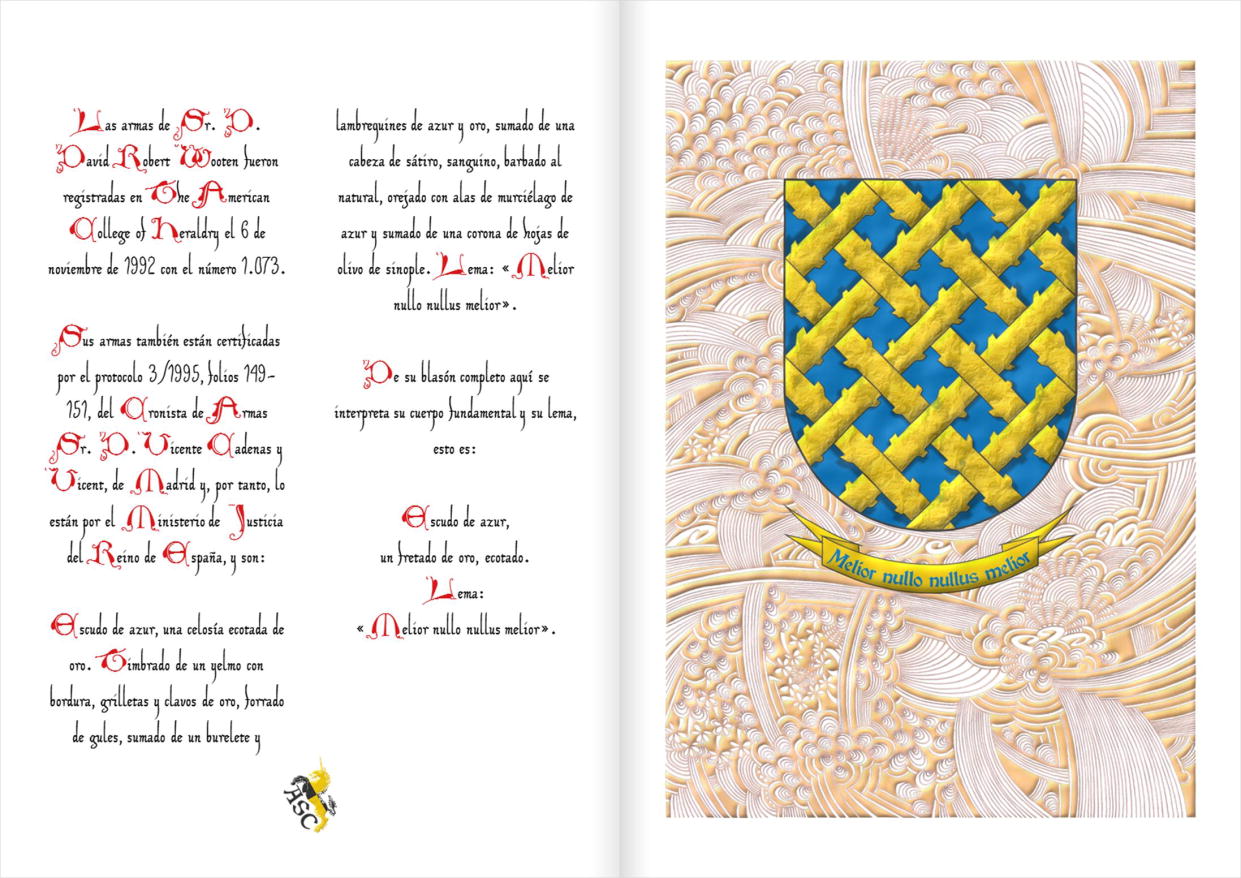 Las armas de Sr. D.
David Robert Wooten fueron
registradas en The American
College of Heraldry el 6 de
noviembre de 1992 con el número 1.073.
Sus armas también están certificadas
por el protocolo 3/1995, folios 149-
151, del Cronista de Armas
Sr. D. Vicente Cadenas y
Vicent, de Madrid y, por tanto, lo
están por el Ministerio de Justicia
del Reino de España, y son:
Escudo de azur, una celosía ecotada de
oro. Timbrado de un yelmo con
bordura, grilletas y clavos de oro, forrado
de gules, sumado de un burelete y
lambrequines de azur y oro, sumado de una
cabeza de sátiro, sanguino, barbado al
natural, orejado con alas de murciélago de
azur y sumado de una corona de hojas de
olivo de sinople. Lema: « Melior
nullo nullus melior» .
De su blasón completo aquí se
interpreta su cuerpo fundamental y su lema,
esto es:
Escudo de azur,
un fretado de oro, ecotado.
Lema:
« Melior nullo nullus melior» .
ASC
Melior nullo nullus melior